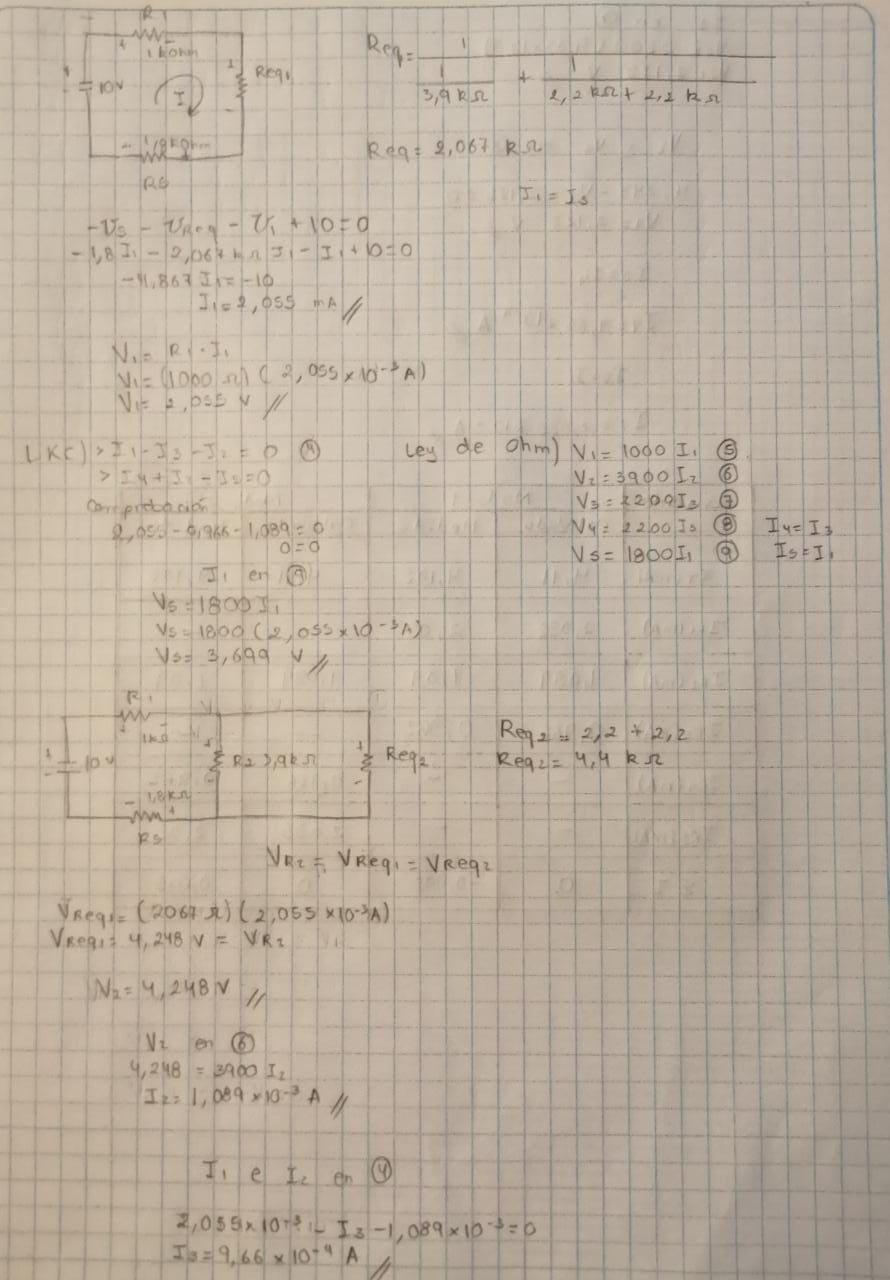 R1
1 kohm
10V
I
Req1
1,8 kohm
R5
Req = 1 / (1/3,9 kΩ + 1/2,2 kΩ + 2,2 kΩ)
Req = 2,067 kΩ
I1 = I5
-V5 - VReq - V1 + 10 = 0
-1,8 I1 - 2,067 kΩ I1 - I1 + 10 = 0
-4,867 I1 = -10
I1 = 2,055 mA //
V1 = R1 · I1
V1 = (1000 Ω) (2,055 × 10⁻³ A)
V1 = 2,055 V //
LKC) > I1 - I3 - I2 = 0 ④
> I4 + I2 - I5 = 0
Comprobación
2,055 - 0,966 - 1,089 = 0
0 = 0
Ley de Ohm) V1 = 1000 I1 ⑤
V2 = 3900 I2 ⑥
V3 = 2200 I3 ⑦
V4 = 2200 I3 ⑧ I4 = I3
V5 = 1800 I1 ⑨ I5 = I1
I1 en ⑨
V5 = 1800 I1
V5 = 1800 (2,055 × 10⁻³ A)
V5 = 3,699 V //
R1
1kΩ
10 V
R2 3,9kΩ
Req2
1,8kΩ
R5
Req2 = 2,2 + 2,2
Req2 = 4,4 kΩ
VR2 = VReq1 = VReq2
VReq1 = (2067 Ω) (2,055 × 10⁻³ A)
VReq1 = 4,248 V = VR2
V2 = 4,248 V //
V2 en ⑥
4,248 = 3900 I2
I2 = 1,089 × 10⁻³ A //
I1 e I2 en ④
2,055 × 10⁻³ - I3 - 1,089 × 10⁻³ = 0
I3 = 9,66 × 10⁻⁴ A //